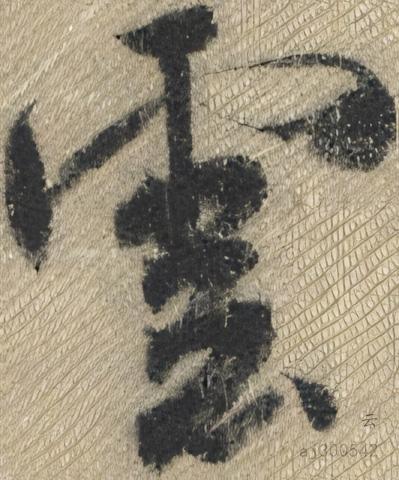 雲
云
a1300542